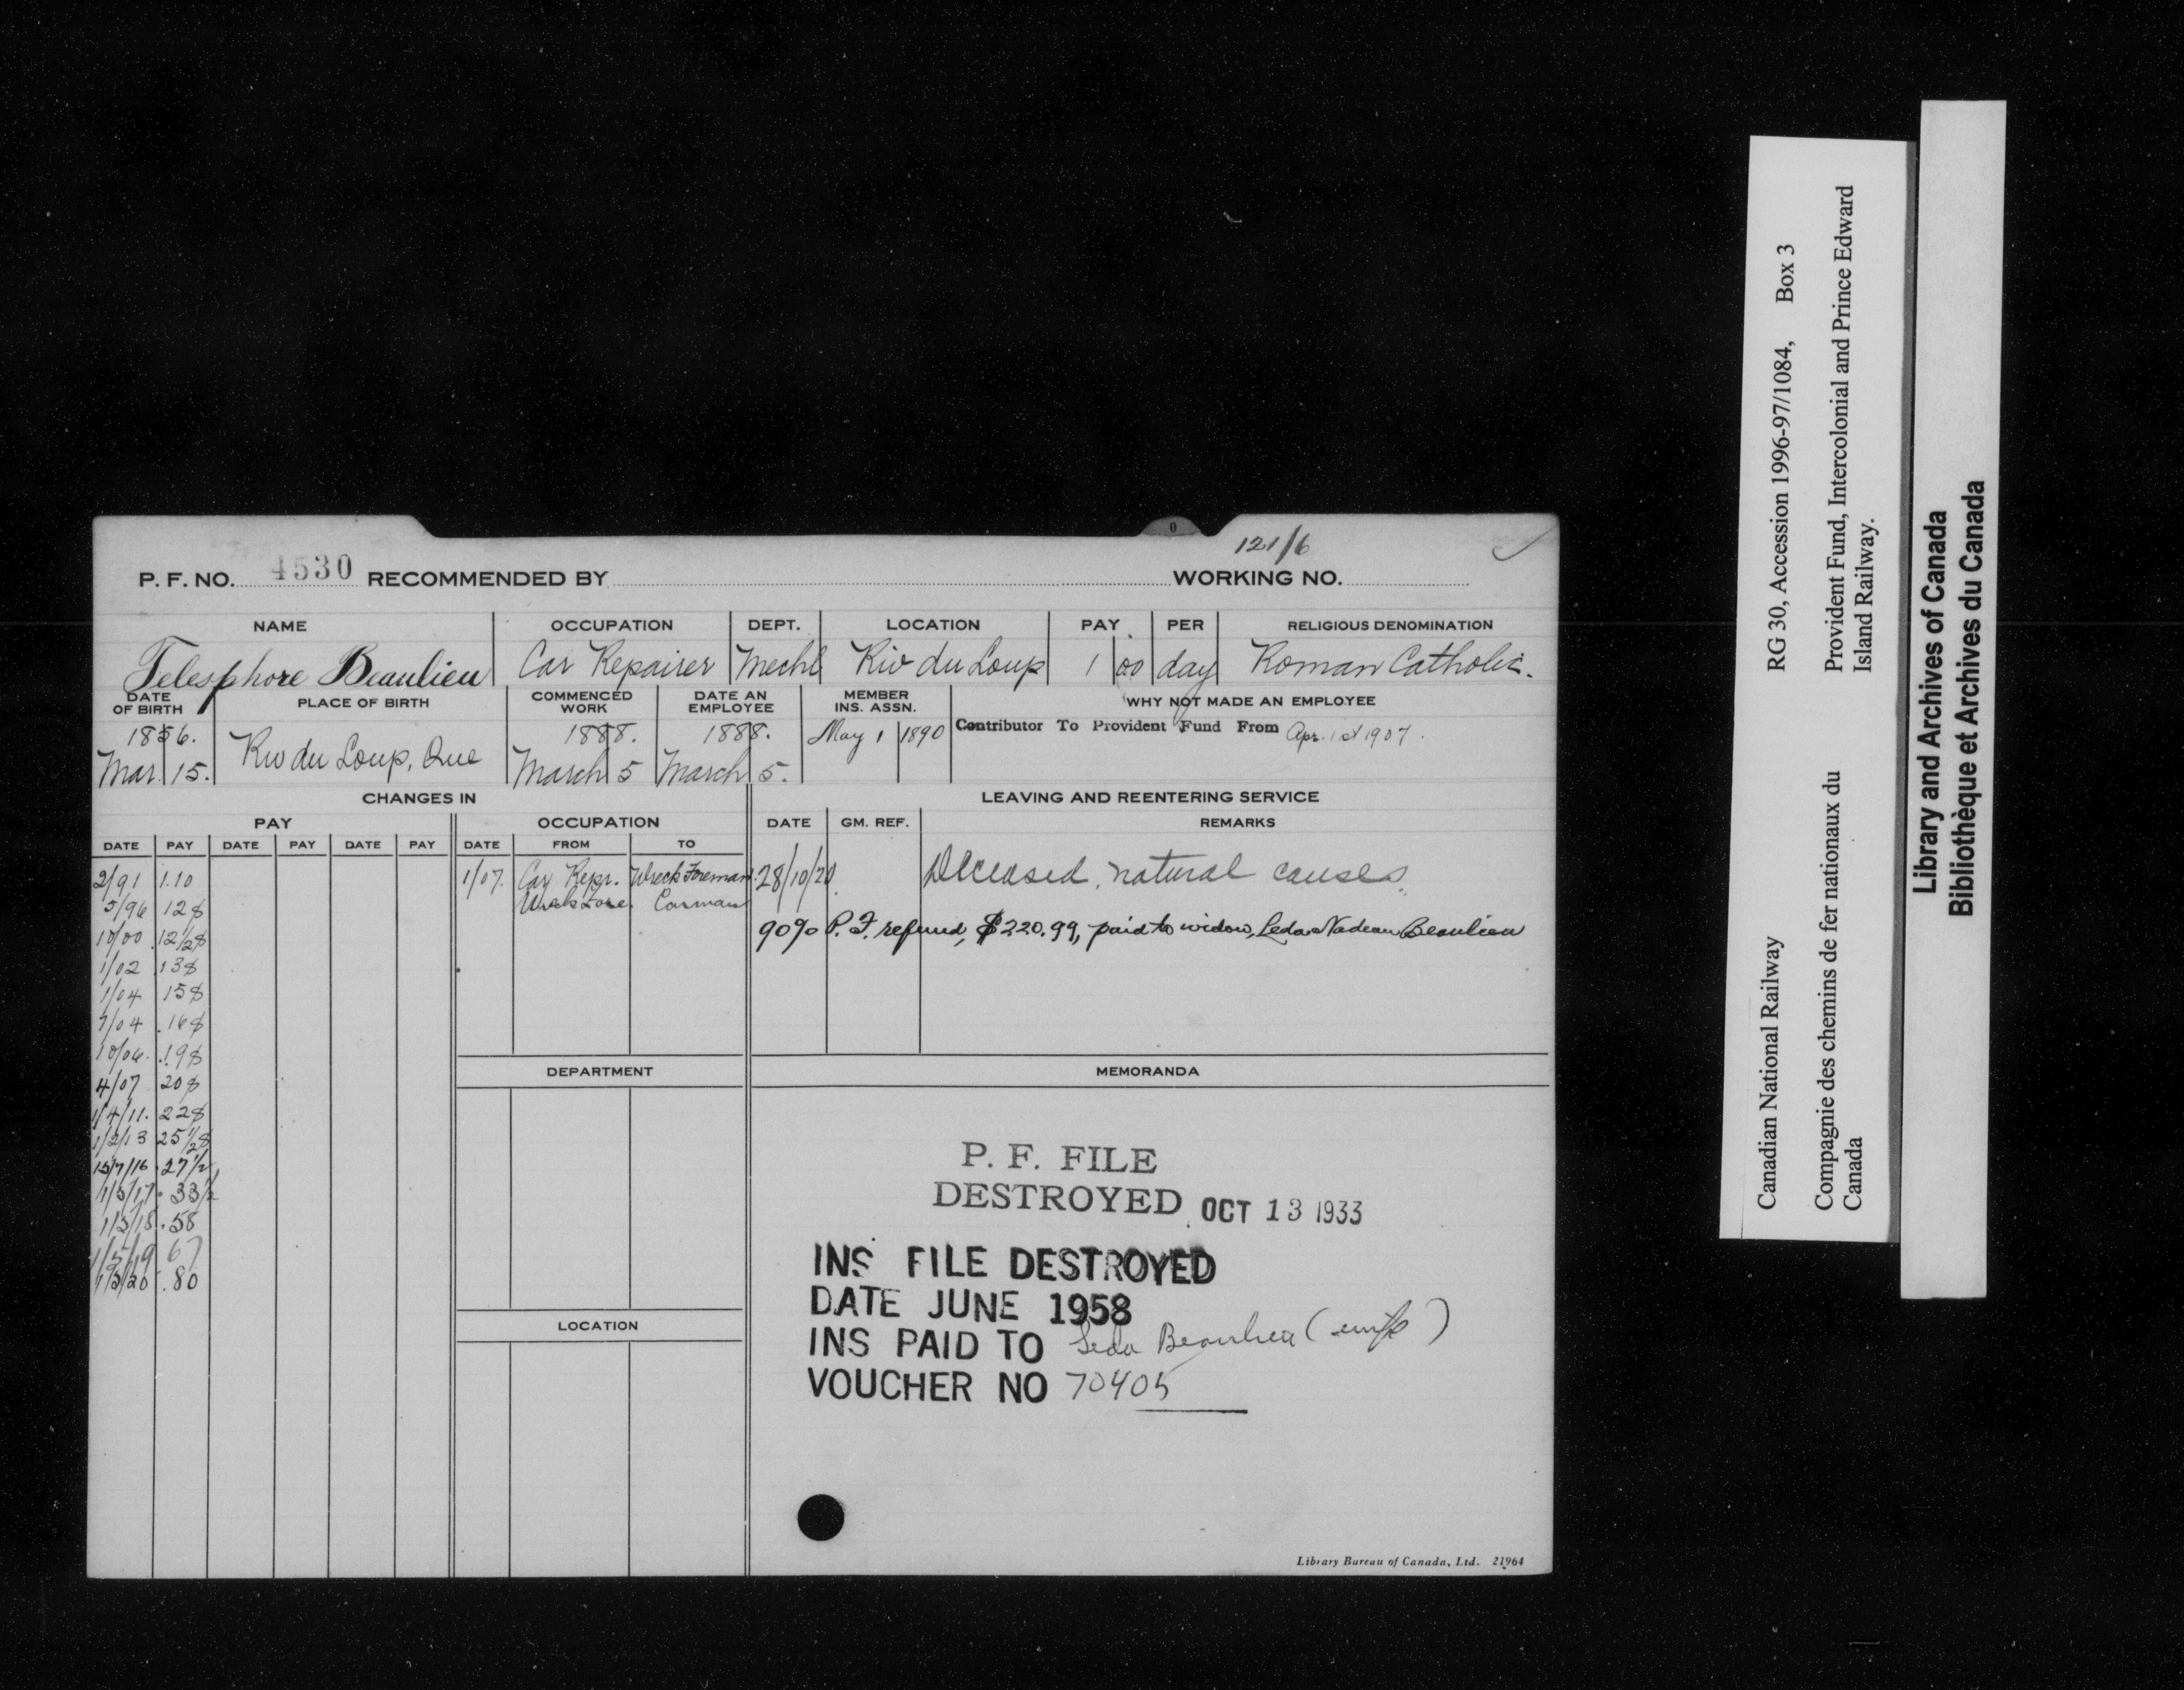 121/6
P. F. NO. 4530 RECOMMENDED BY WORKING NO.
NAME OCCUPATION DEPT. LOCATION PAY PER RELIGIOUS DENOMINATION
Telesphore Beaulieu Car Repairer Mechl Riv du Loup 1 00 day Roman Catholic.
DATE OF BIRTH PLACE OF BIRTH COMMENCED WORK DATE AN EMPLOYEE MEMBER INS. ASSN. WHY NOT MADE AN EMPLOYEE
1856. Mar. 15. Riv du Loup, Que 1888. March 5 1888. March 5. May 1 1890 Contributor To Provident Fund From Apr. 1st 1907.
CHANGES IN LEAVING AND REENTERING SERVICE
PAY OCCUPATION DATE GM. REF. REMARKS
DATE PAY DATE PAY DATE PAY DATE FROM TO
2/91 1.10 1/07. Car Repr. Wreck Foreman. 28/10/20 Deceased, natural causes.
5/96 12¢ Carman
90% P. F. refund, $220.99, paid to widow, Leda Nadeau Beaulieu
10/00 .12½¢
1/02 13¢
1/04 15¢
7/04 .16¢
10/06. .19¢
4/07 20¢
1/4/11. 22¢
1/2/13 25½¢
15/7/16 .27½
1/5/17 .33½
1/3/18 .58
1/5/19 67
1/5/20 .80
DEPARTMENT MEMORANDA
P. F. FILE
DESTROYED OCT 13 1933
INS FILE DESTROYED
DATE JUNE 1958
LOCATION
INS PAID TO Leda Beaulieu (wife)
VOUCHER NO 70405
Library Bureau of Canada, Ltd. 21964
0
Canadian National Railway RG 30, Accession 1996-97/1084, Box 3
Compagnie des chemins de fer nationaux du Canada
Provident Fund, Intercolonial and Prince Edward Island Railway.
Library and Archives of Canada
Bibliothèque et Archives du Canada